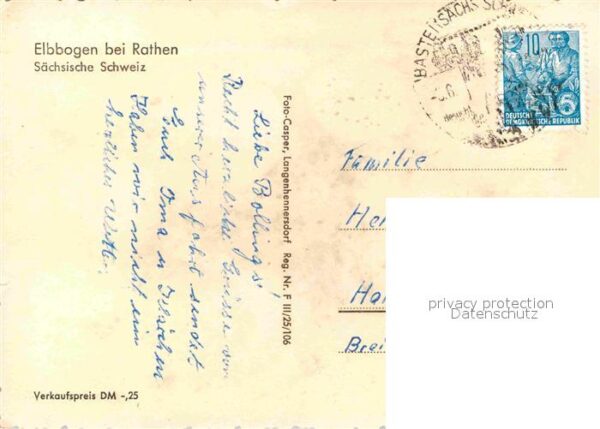 Elbbogen bei Rathen
Sächsische Schweiz
Liebe Bollings!
Recht herzliche Grüsse von
unserer Ausfahrt sendet
Euch Oma u.
Haben wir nicht ein
herrliches Wetter.
Verkaufspreis DM -,25
Foto-Casper, Langenhennersdorf Reg. Nr. F III/25/106
(BASTEI SÄCHS
10
6
DEUTSCHE
DEMOKRATISCHE REPUBLIK
Familie
He
Ha
Brei
privacy protection
Datenschutz